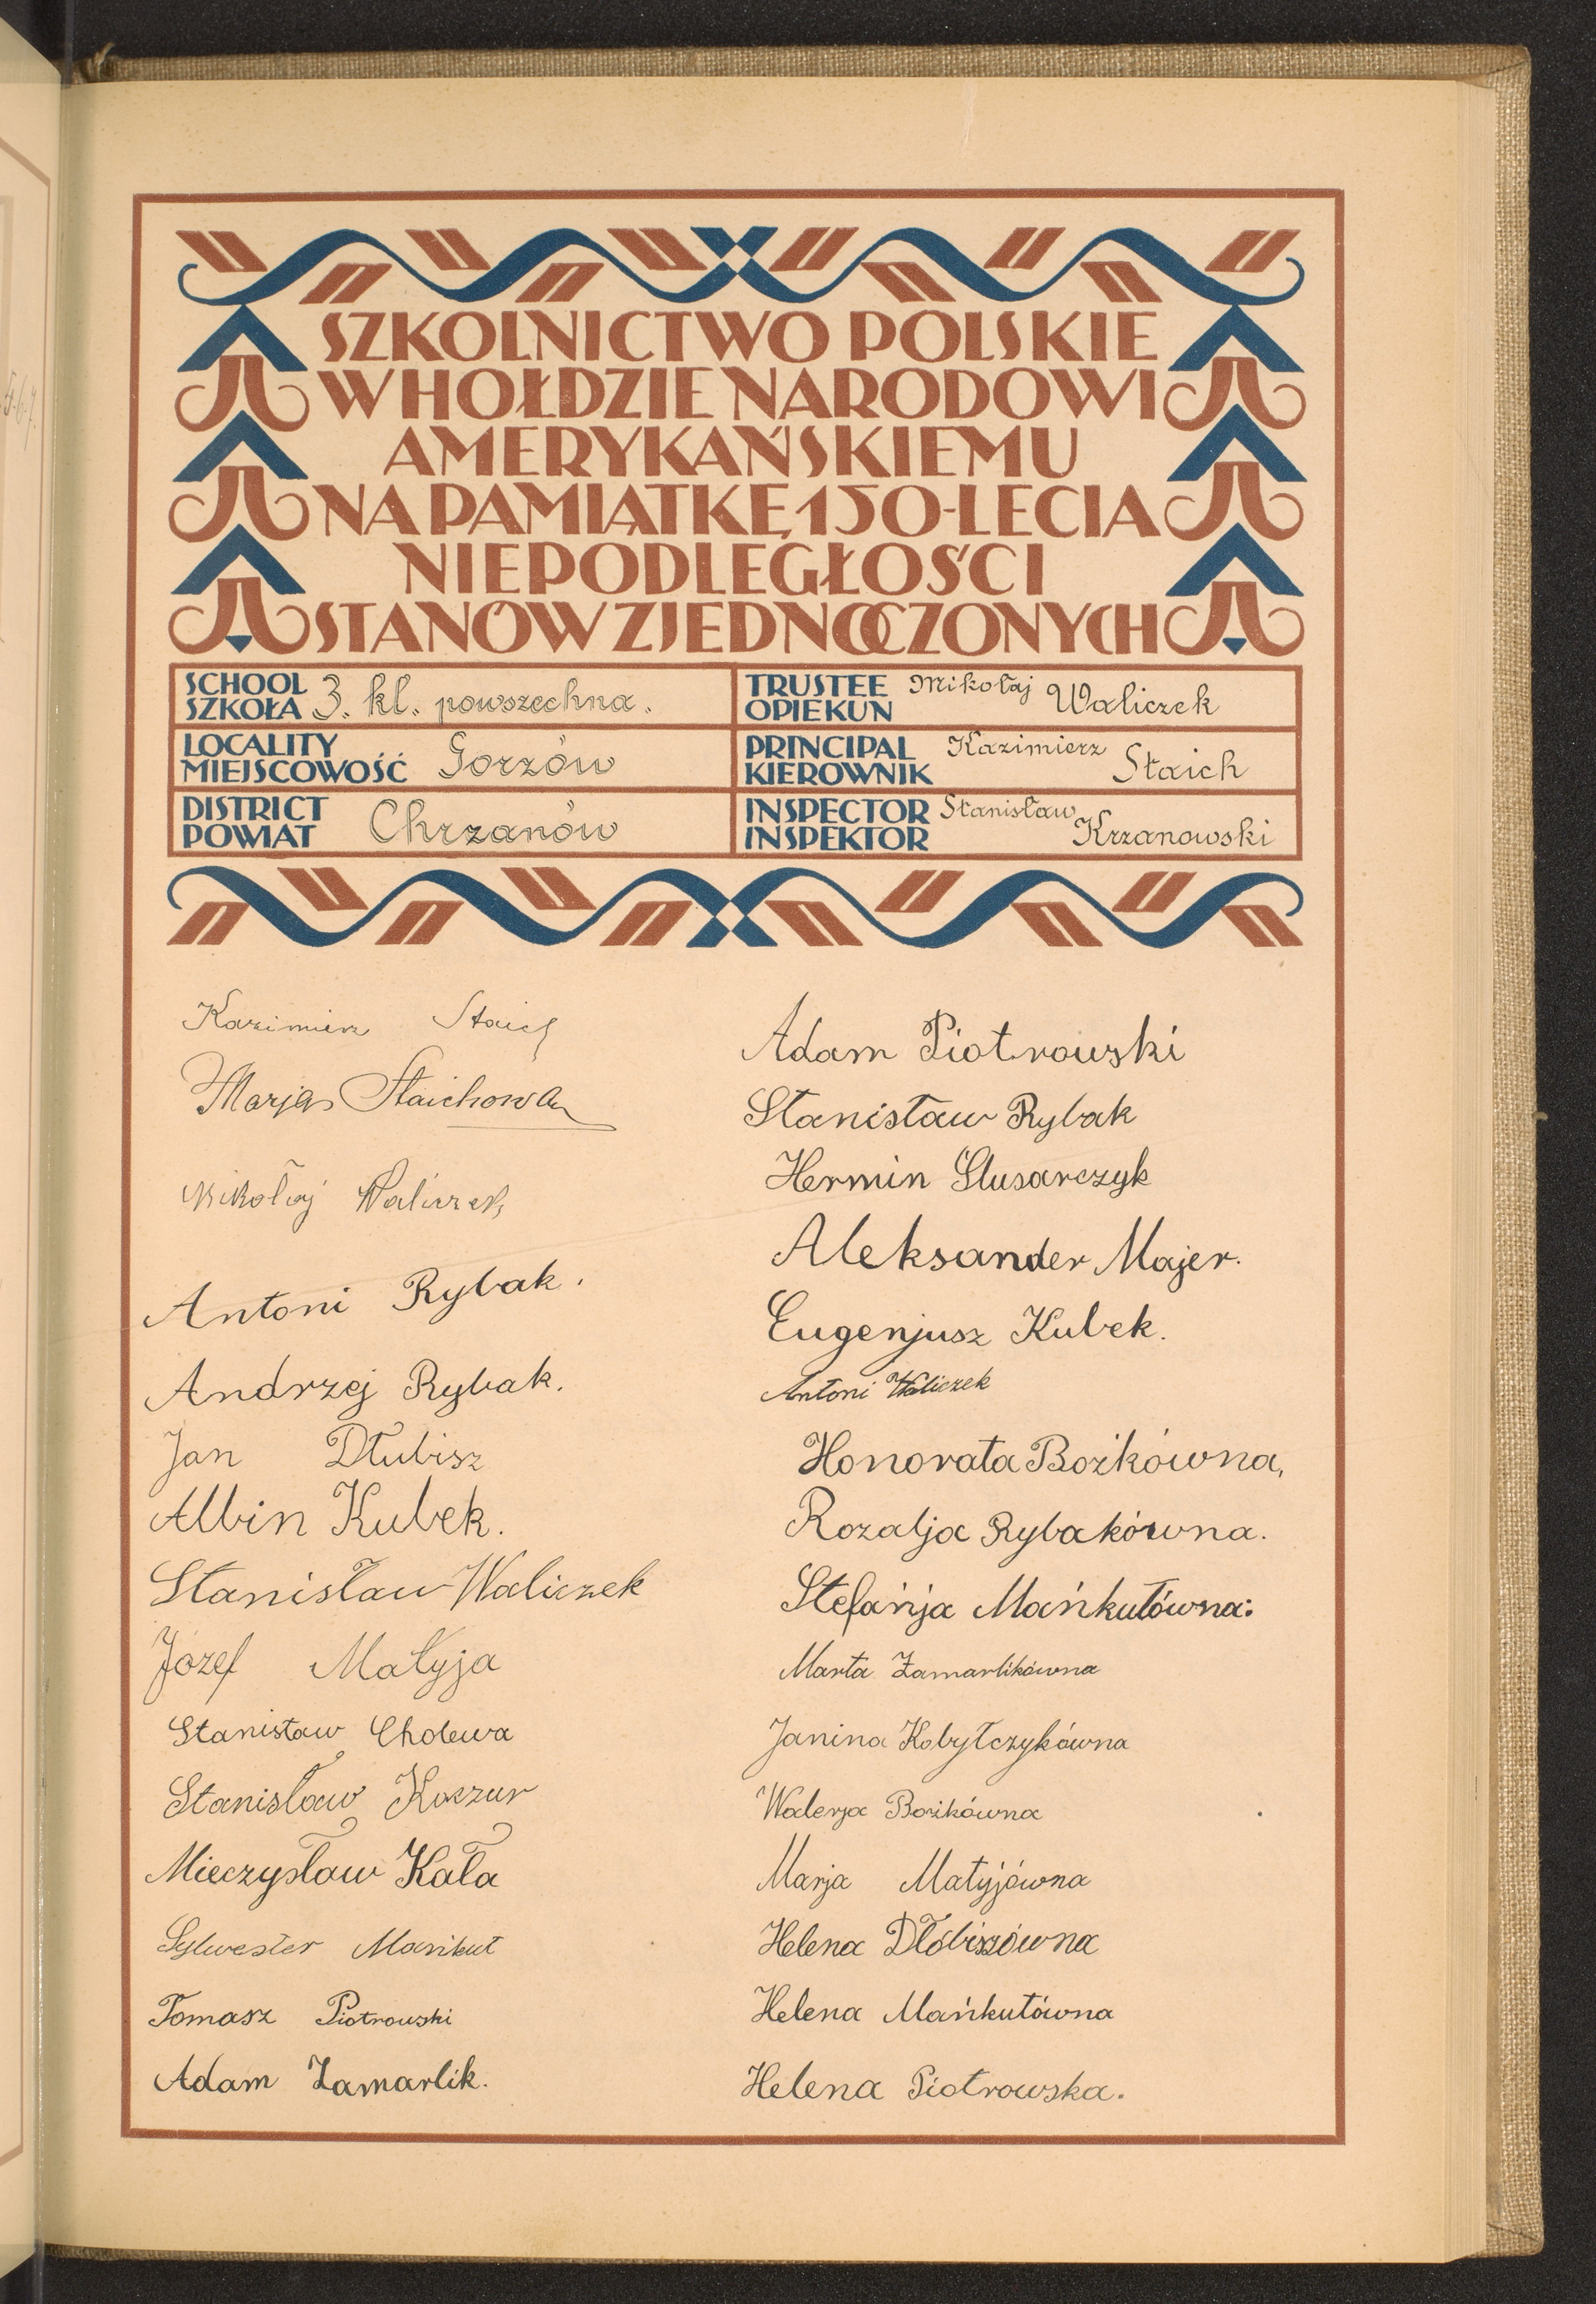 SZKOLNICTWO POLSKIE
W HOŁDZIE NARODOWI
AMERYKAŃSKIEMU
NA PAMIĄTKĘ 150-LECIA
NIEPODLEGŁOŚCI
STANÓW ZJEDNOCZONYCH
SCHOOL
SZKOŁA 3. kl. powszechna.
TRUSTEE
OPIEKUN Mikołaj Waliczek
LOCALITY
MIEJSCOWOŚĆ Gorzów
PRINCIPAL
KIEROWNIK Kazimierz Staich
DISTRICT
POWIAT Chrzanów
INSPECTOR
INSPEKTOR Stanisław Krzanowski
Kazimierz Staich
Marja Staichowa
Mikołaj Waliczek
Antoni Rybak.
Andrzej Rybak.
Jan Dłubisz
Albin Kubek.
Stanisław Waliczek
Józef Matyja
Stanisław Cholewa
Stanisław Koczur
Mieczysław Kała
Sylwester Mańkut
Tomasz Piotrowski
Adam Zamarlik.
Adam Piotrowski
Stanisław Rybak
Hermin Ślusarczyk
Aleksander Majer.
Eugenjusz Kubek.
Antoni Waliczek
Honorata Bożkówna,
Rozalja Rybakówna.
Stefańja Mańkutówna:
Marta Zamarlikówna
Janina Kobyłczykówna
Walerja Bożkówna
Marja Matyjówna
Helena Dłóbiszówna
Helena Mańkutówna
Helena Piotrowska.